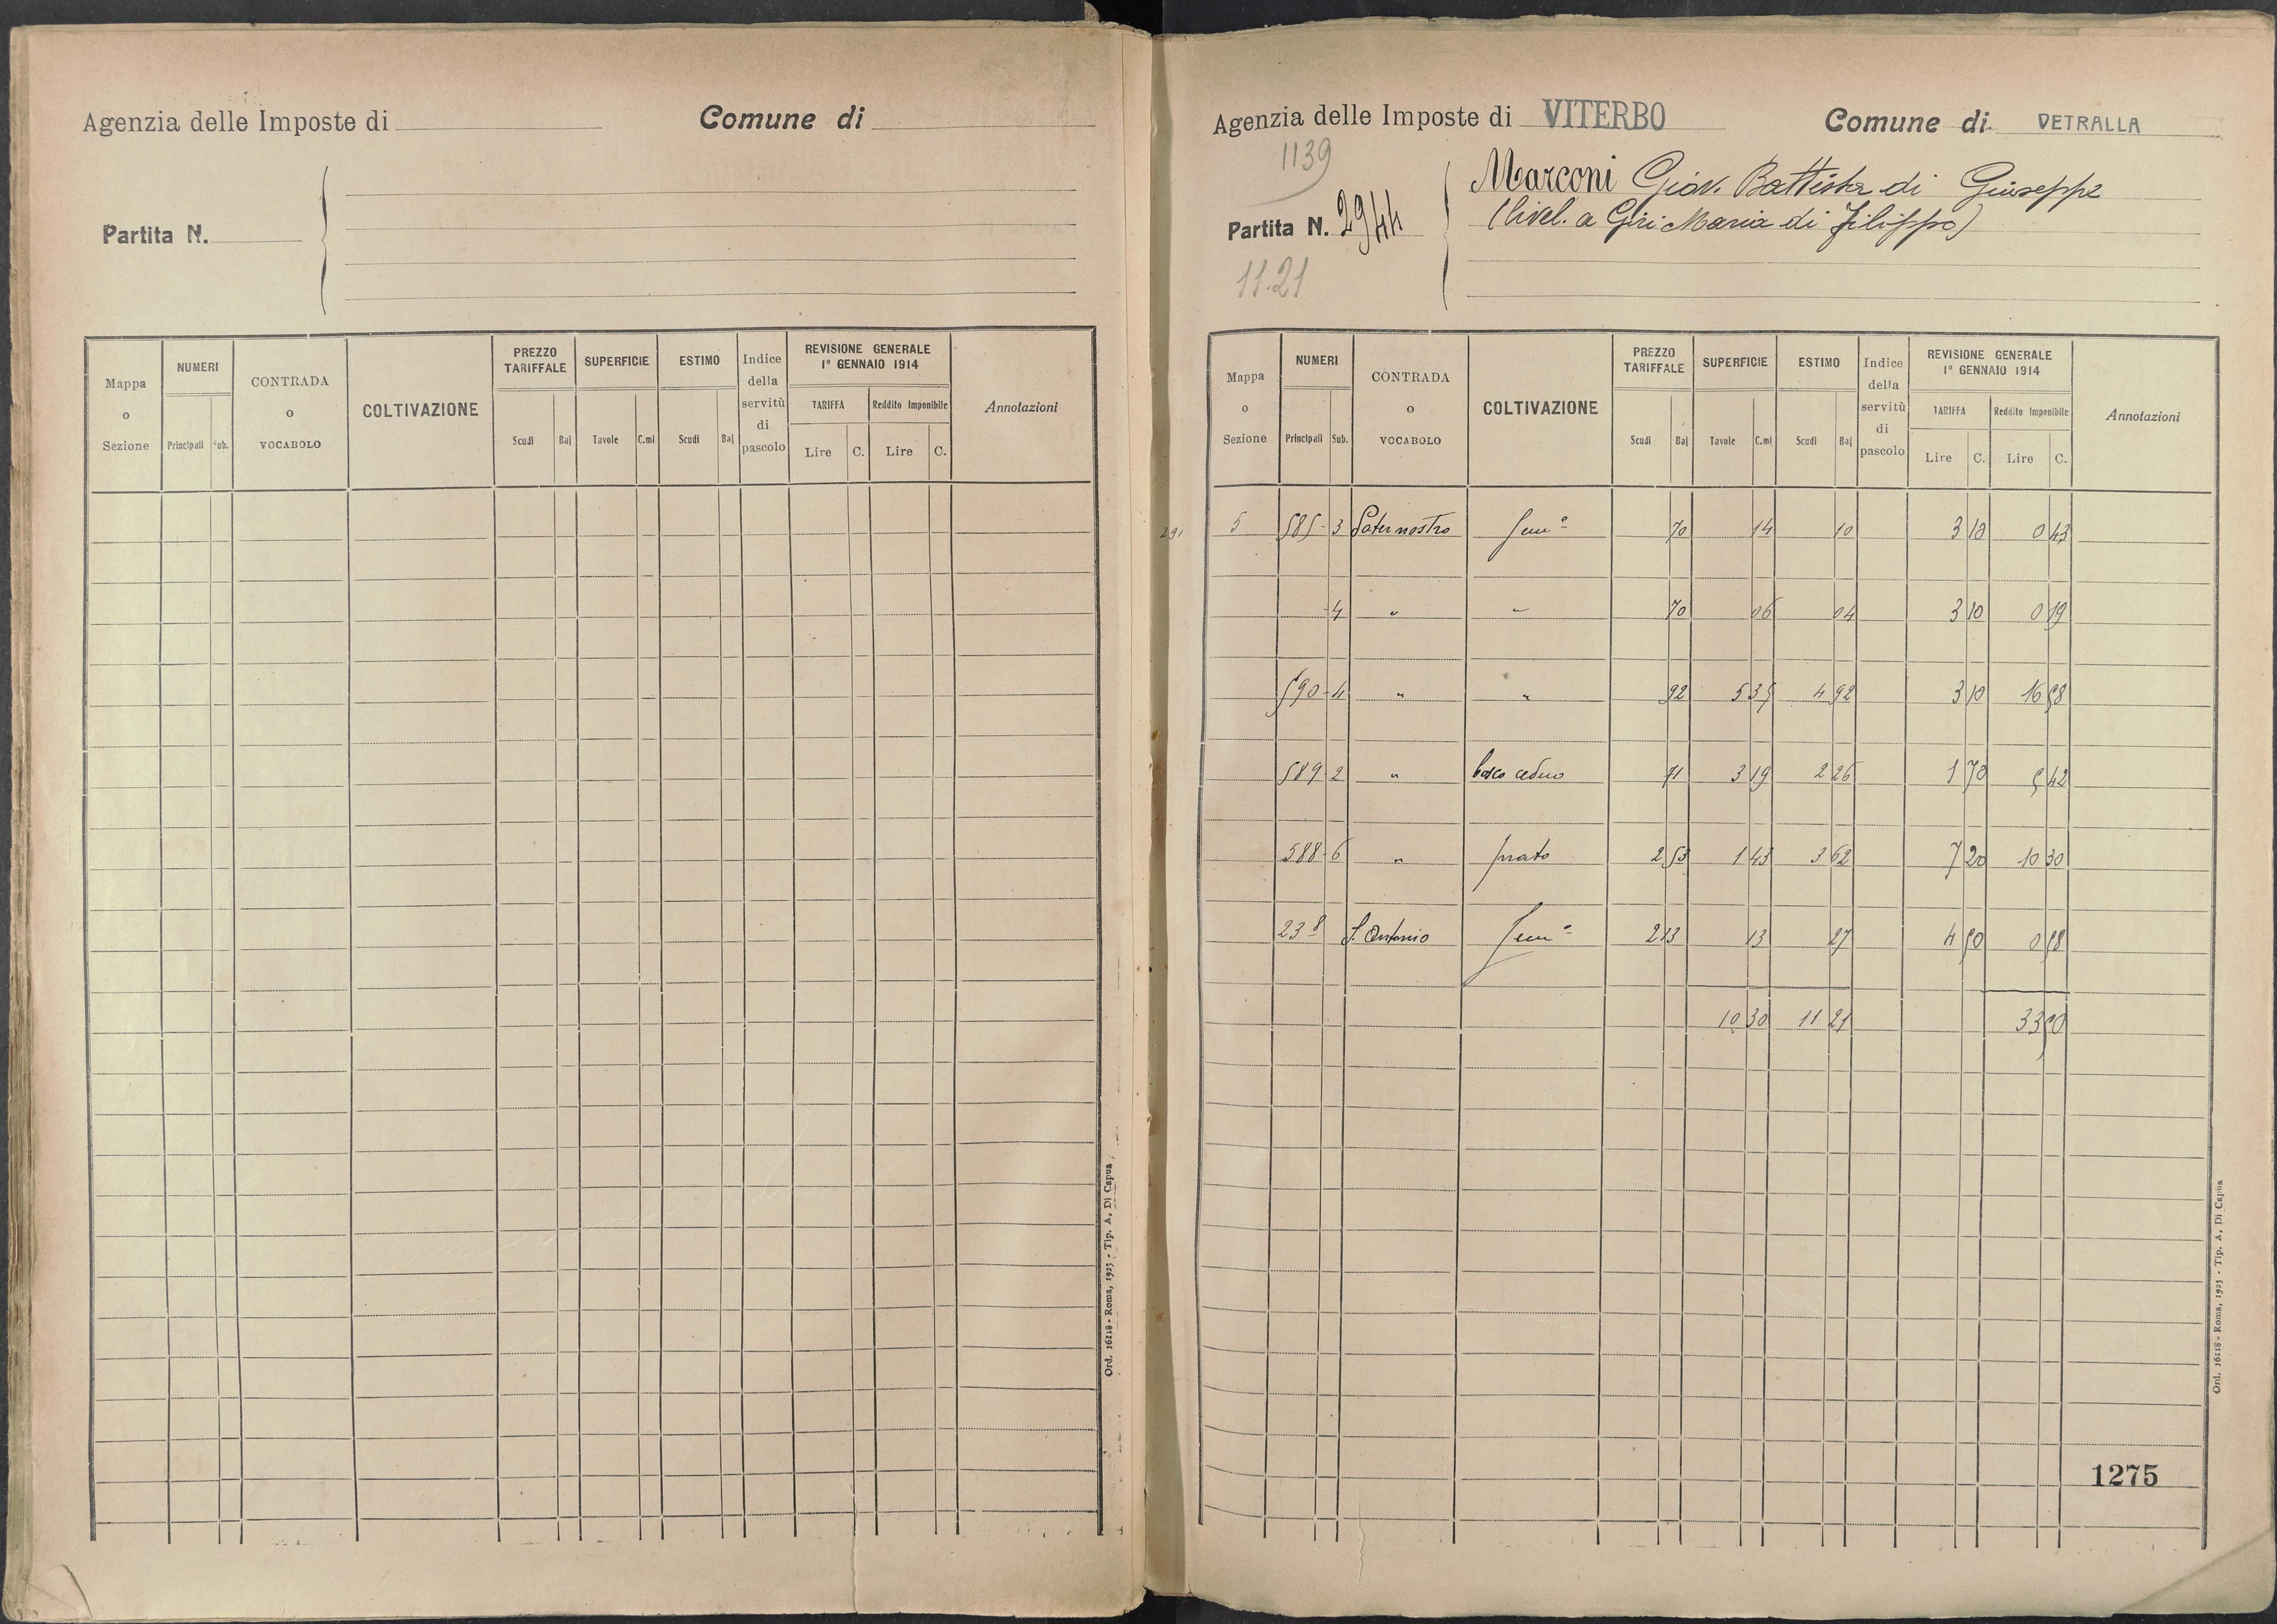 Agenzia delle Imposte di
Comune di
Partita N.
Mappa o Sezione
NUMERI
Principali
Sub.
CONTRADA o VOCABOLO
COLTIVAZIONE
PREZZO TARIFFALE
Scudi
Baj
SUPERFICIE
Tavole
C.mi
ESTIMO
Scudi
Baj
Indice della servitù di pascolo
REVISIONE GENERALE
1° GENNAIO 1914
TARIFFA
Lire
C.
Reddito Imponibile
Lire
C.
Annotazioni
Ord. 16118 - Roma, 1923 - Tip. A. Di Capua
Agenzia delle Imposte di VITERBO
Comune di VETRALLA
1139
Partita N. 2944
11.21
Marconi Giov. Battista di Giuseppe
(livel. a Giri Maria di Filippo)
Mappa o Sezione
NUMERI
Principali
Sub.
CONTRADA o VOCABOLO
COLTIVAZIONE
PREZZO TARIFFALE
Scudi
Baj
SUPERFICIE
Tavole
C.mi
ESTIMO
Scudi
Baj
Indice della servitù di pascolo
REVISIONE GENERALE
1° GENNAIO 1914
TARIFFA
Lire
C.
Reddito Imponibile
Lire
C.
Annotazioni
291 5 585 - 3 Paternostro Sem° 70 14 10 3 10 0 43
- 4 " " 70 06 04 3 10 0 19
590 - 4 " " 92 5 35 4 92 3 10 16 58
589 2 " bosco ceduo 71 3 19 2 26 1 70 5 42
588 - 6 " prato 2 53 1 43 3 62 7 20 10 30
238 S. Antonio Sem° 2 13 13 27 4 50 0 58
10 30 11 21 33 50
1275
Ord. 16118 - Roma, 1923 - Tip. A. Di Capua